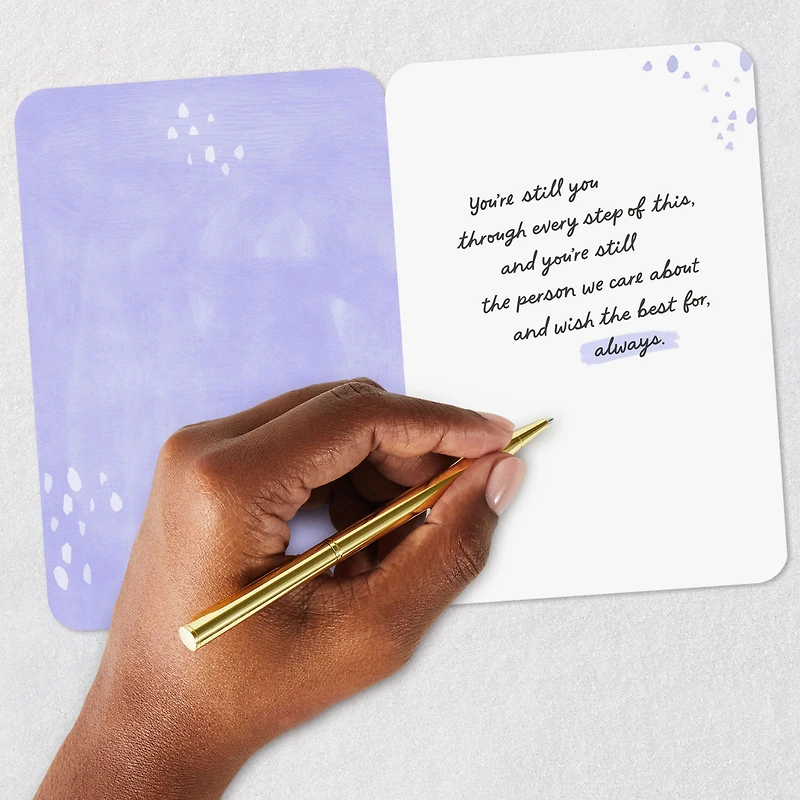 You're still you
through every step of this,
and you're still
the person we care about
and wish the best for,
always.